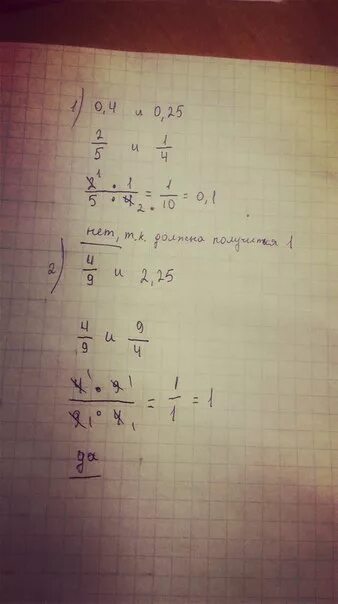 1) 0,4 и 0,25
2/5 и 1/4
2¹ · 1 / 5 · 4₂ = 1/10 = 0,1
нет, т.к. должна получится 1
2) 4/9 и 2,25
4/9 и 9/4
4¹ · 9¹ / 9₁ · 4₁ = 1/1 = 1
да